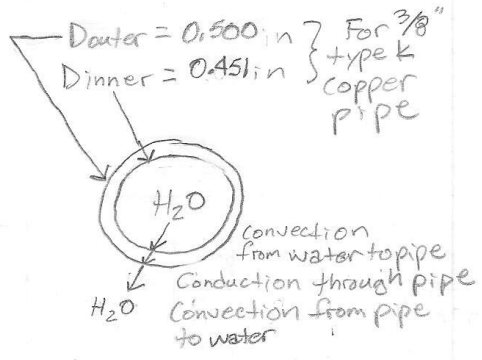 Douter = 0.500 in
Dinner = 0.451 in
For 3/8"
type K
copper
pipe
H2O
convection
from water to pipe
Conduction through pipe
H2O
Convection from pipe
to water